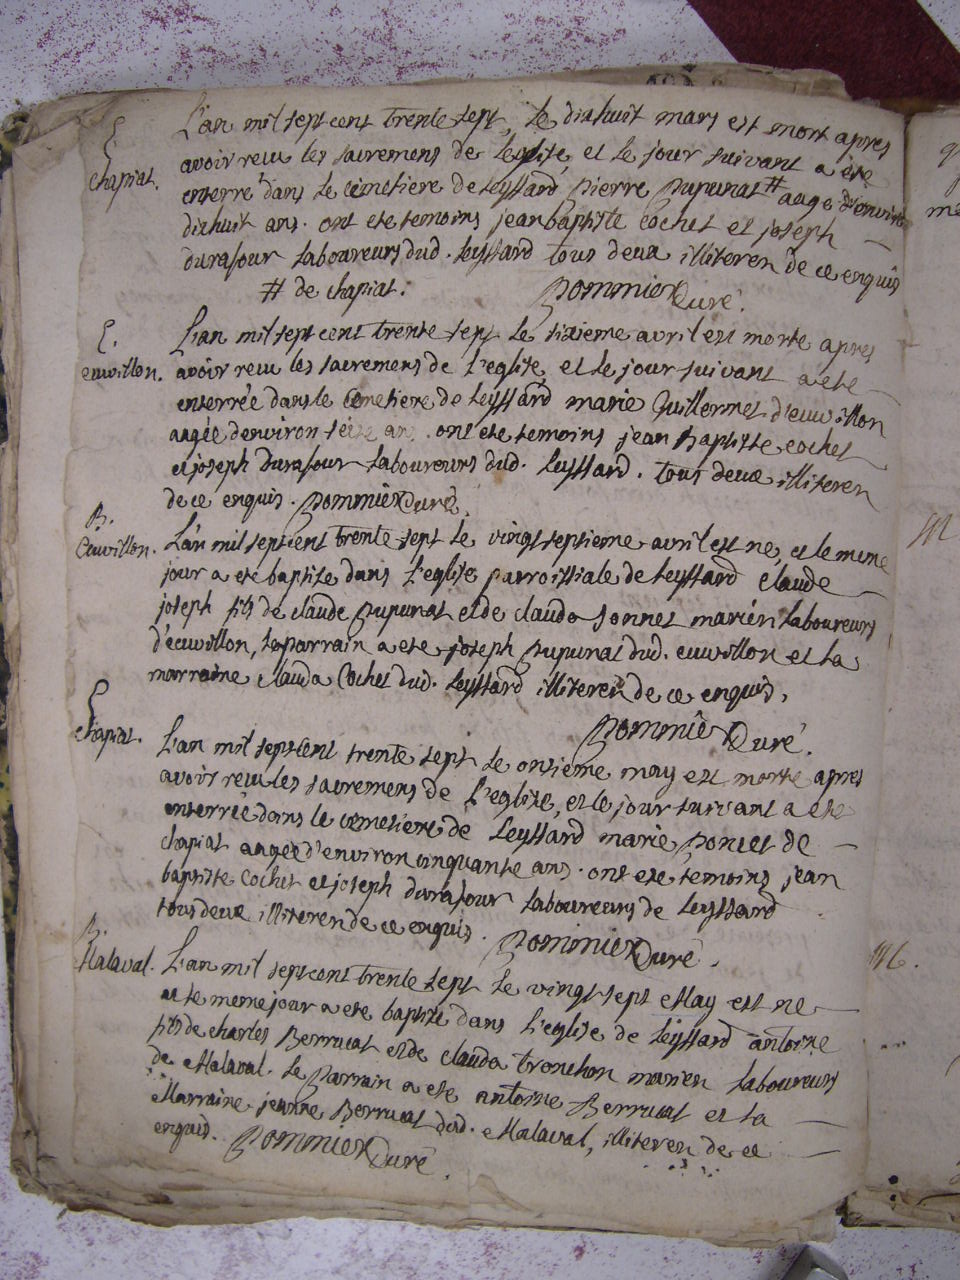 E
chapiat.
L'an mil sept cent trente sept, le dixhuit mars est mort apres
avoir reçu les sacremens de l'eglise, et le jour suivant a été
enterré dans le cimetiere de leyssard pierre pupunat # aagé d'environ
dixhuit ans. ont ete temoins jean baptiste cochet et joseph
durafour laboureurs dud. leyssard tous deux illiteren de ce enquis
# de chapiat.
pommier Curé.
E.
euwillon.
L'an mil sept cent trente sept le sixieme avril est morte apres
avoir reçu les sacremens de l'eglise, et le jour suivant a ete
enterrée dans le cemetiere de leyssard marie Guillermet d'euwillon
aagée d'environ ans. ont ete temoins jean Baptiste cochet
et joseph durafour laboureurs dud. leyssard. tous deux illiteren
de ce enquis. pommier Curé.
B.
Euwillon.
L'an mil sept cent trente sept le vingt septieme avril est ne, et le meme
jour a ete baptise dans l'eglise parroissiale de leyssard claude
joseph fils de claude pupunat et de clauda sonnet mariéz laboureurs
d'euwillon, le parrain a ete joseph pupunat dud. euwillon et la
marraine clauda Cochet dud. leyssard illiteren de ce enquis.
pommier Curé.
E
chapiat.
L'an mil sept cent trente sept le onsieme may est morte apres
avoir reçu les sacremens de l'eglise, et le jour suivant a ete
enterrée dans le cemetiere de leyssard marie poncet de
chapiat aagée d'environ cinquante ans. ont ete temoins jean
baptiste cochet et joseph durafour laboureurs de leyssard
tous deux illiteren de ce enquis. pommier Curé.
B.
Malaval.
L'an mil sept cent trente sept le vingt sept May est ne
et le meme jour a ete baptisé dans l'eglise de leyssard antoine
fils de charles Berrucat et de clauda tronchon mariez laboureurs
de Malaval. le parrain a ete antoine Berrucat et la
Marraine jeanne Berrucat dud. Malaval, illiteren de ce
enquis. pommier Curé.